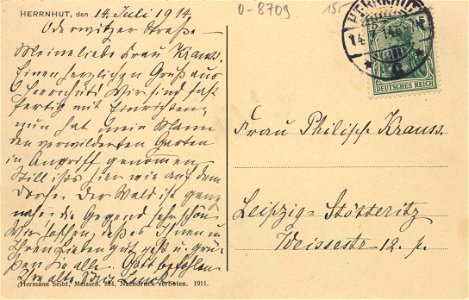 HERRNHUT, den 14. Juli 1914
D-8709
15.-
Oderwitzer Straße
HERRNHUT
14.7.14
DEUTSCHES REICH
Meine liebe Frau Krauss.
Einen herzlichen Gruß aus
Herrnhut. Wir sind fast
fertig mit Einrichten,
nun hat mein Mann
den verwilderten Garten
in Angriff genommen.
Still ists hier wie auf dem
Dorfe. Der Wald ist ganz
nahe, die Gegend sehr schön.
Wir hoffen, daß es Ihnen u.
Ihren Lieben gut geht u. grü-
ßen Sie alle. Gott befohlen
Frau Philipp Krauss
Leipzig-Stötteritz
Weissestr. 12. p.
Hermann Seibt, Meissen. 934. Nachdruck verboten. 1911.